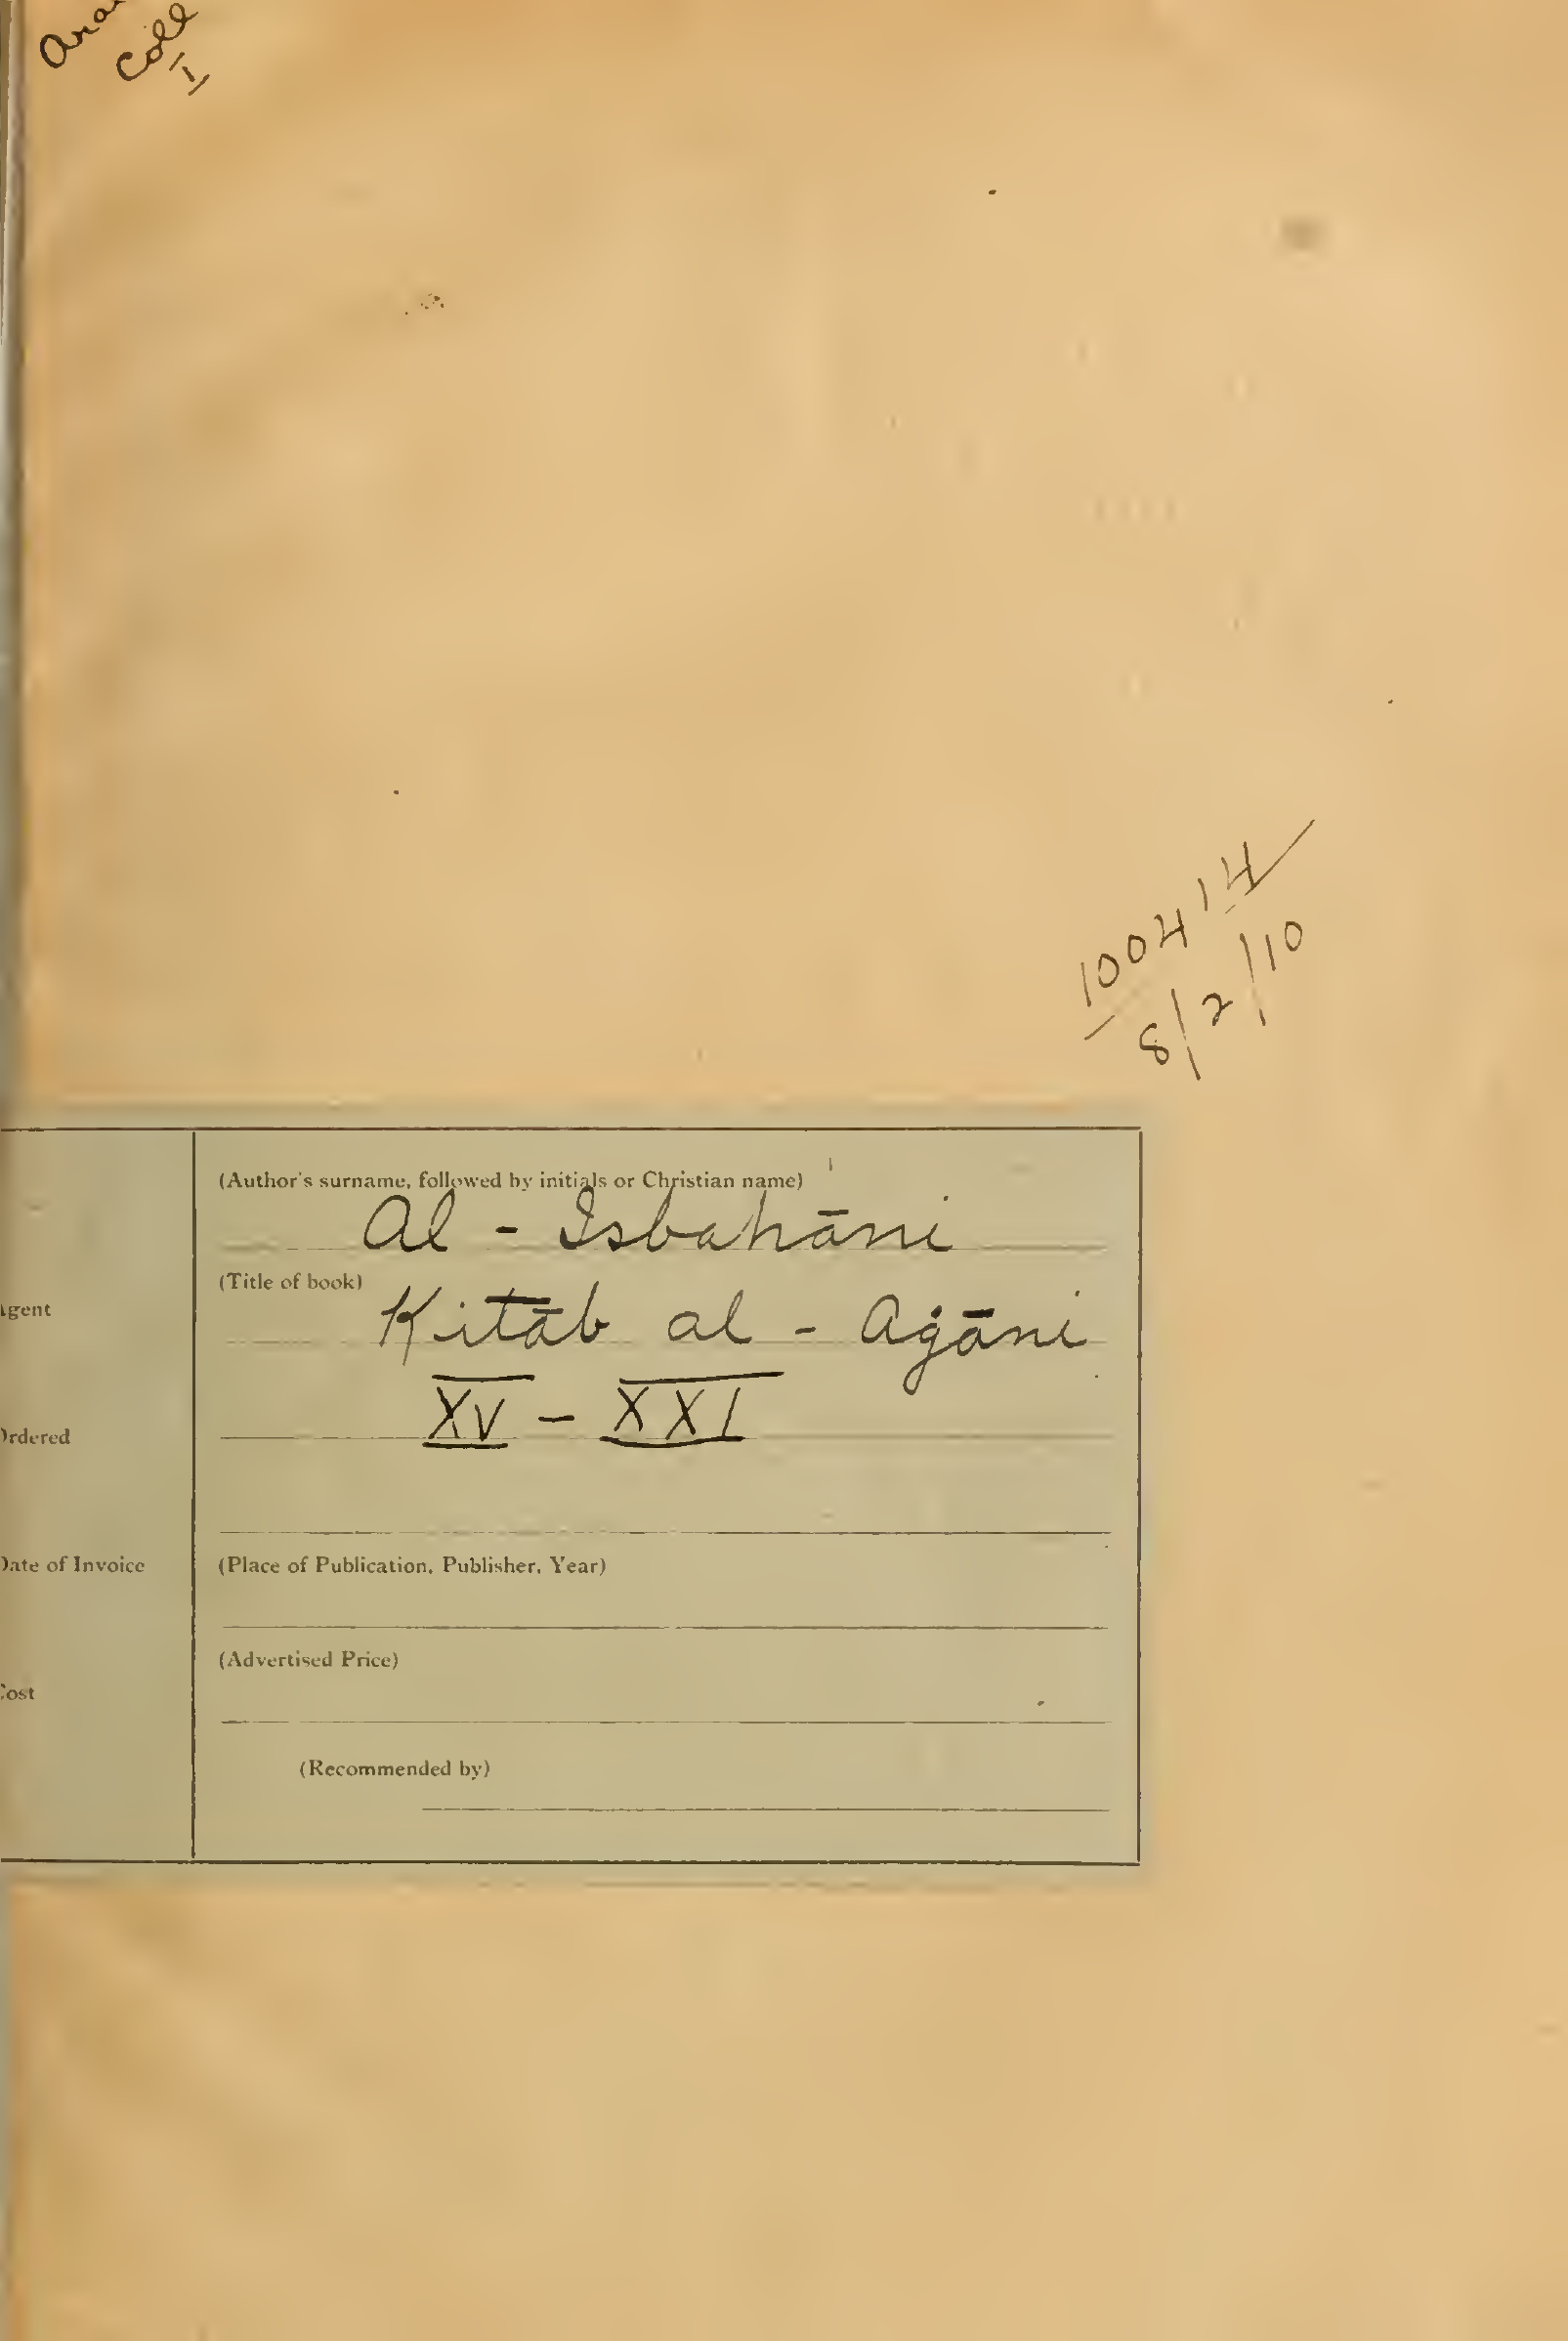 Coll
I
100414
8/2/10
(Author's surname, followed by initials or Christian name)
Al - Isbahāni
(Title of book)
Agent
Kitāb al - Aġāni
XV - XXI
Ordered
Date of Invoice
(Place of Publication, Publisher, Year)
(Advertised Price)
Cost
(Recommended by)